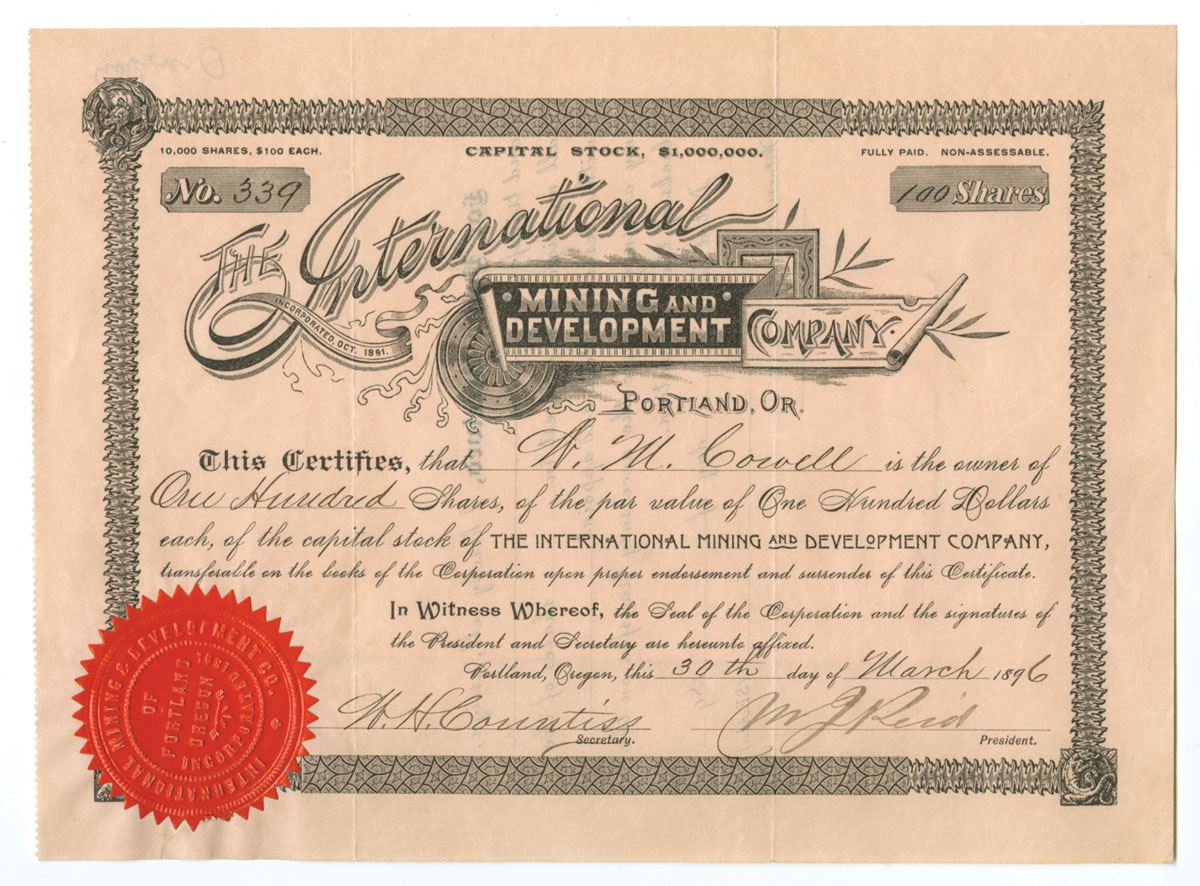 Oregon
10,000 SHARES, $100 EACH.
CAPITAL STOCK, $1,000,000.
FULLY PAID. NON-ASSESSABLE.
No. 339
100 Shares
THE International
INCORPORATED, OCT. 1891.
MINING AND DEVELOPMENT
COMPANY
PORTLAND, OR.
This Certifies, that W. M. Cowell is the owner of
One Hundred Shares, of the par value of One Hundred Dollars
each, of the capital stock of THE INTERNATIONAL MINING AND DEVELOPMENT COMPANY,
transferable on the books of the Corporation upon proper endorsement and surrender of this Certificate.
In Witness Whereof, the Seal of the Corporation and the signatures of
the President and Secretary are hereunto affixed.
Portland, Oregon, this 30th day of March 1896
W. H. Countiss
Secretary.
M J Reid
President.
INTERNATIONAL MINING & DEVELOPMENT CO.
OF
PORTLAND
OREGON
INCORPORATED 1891